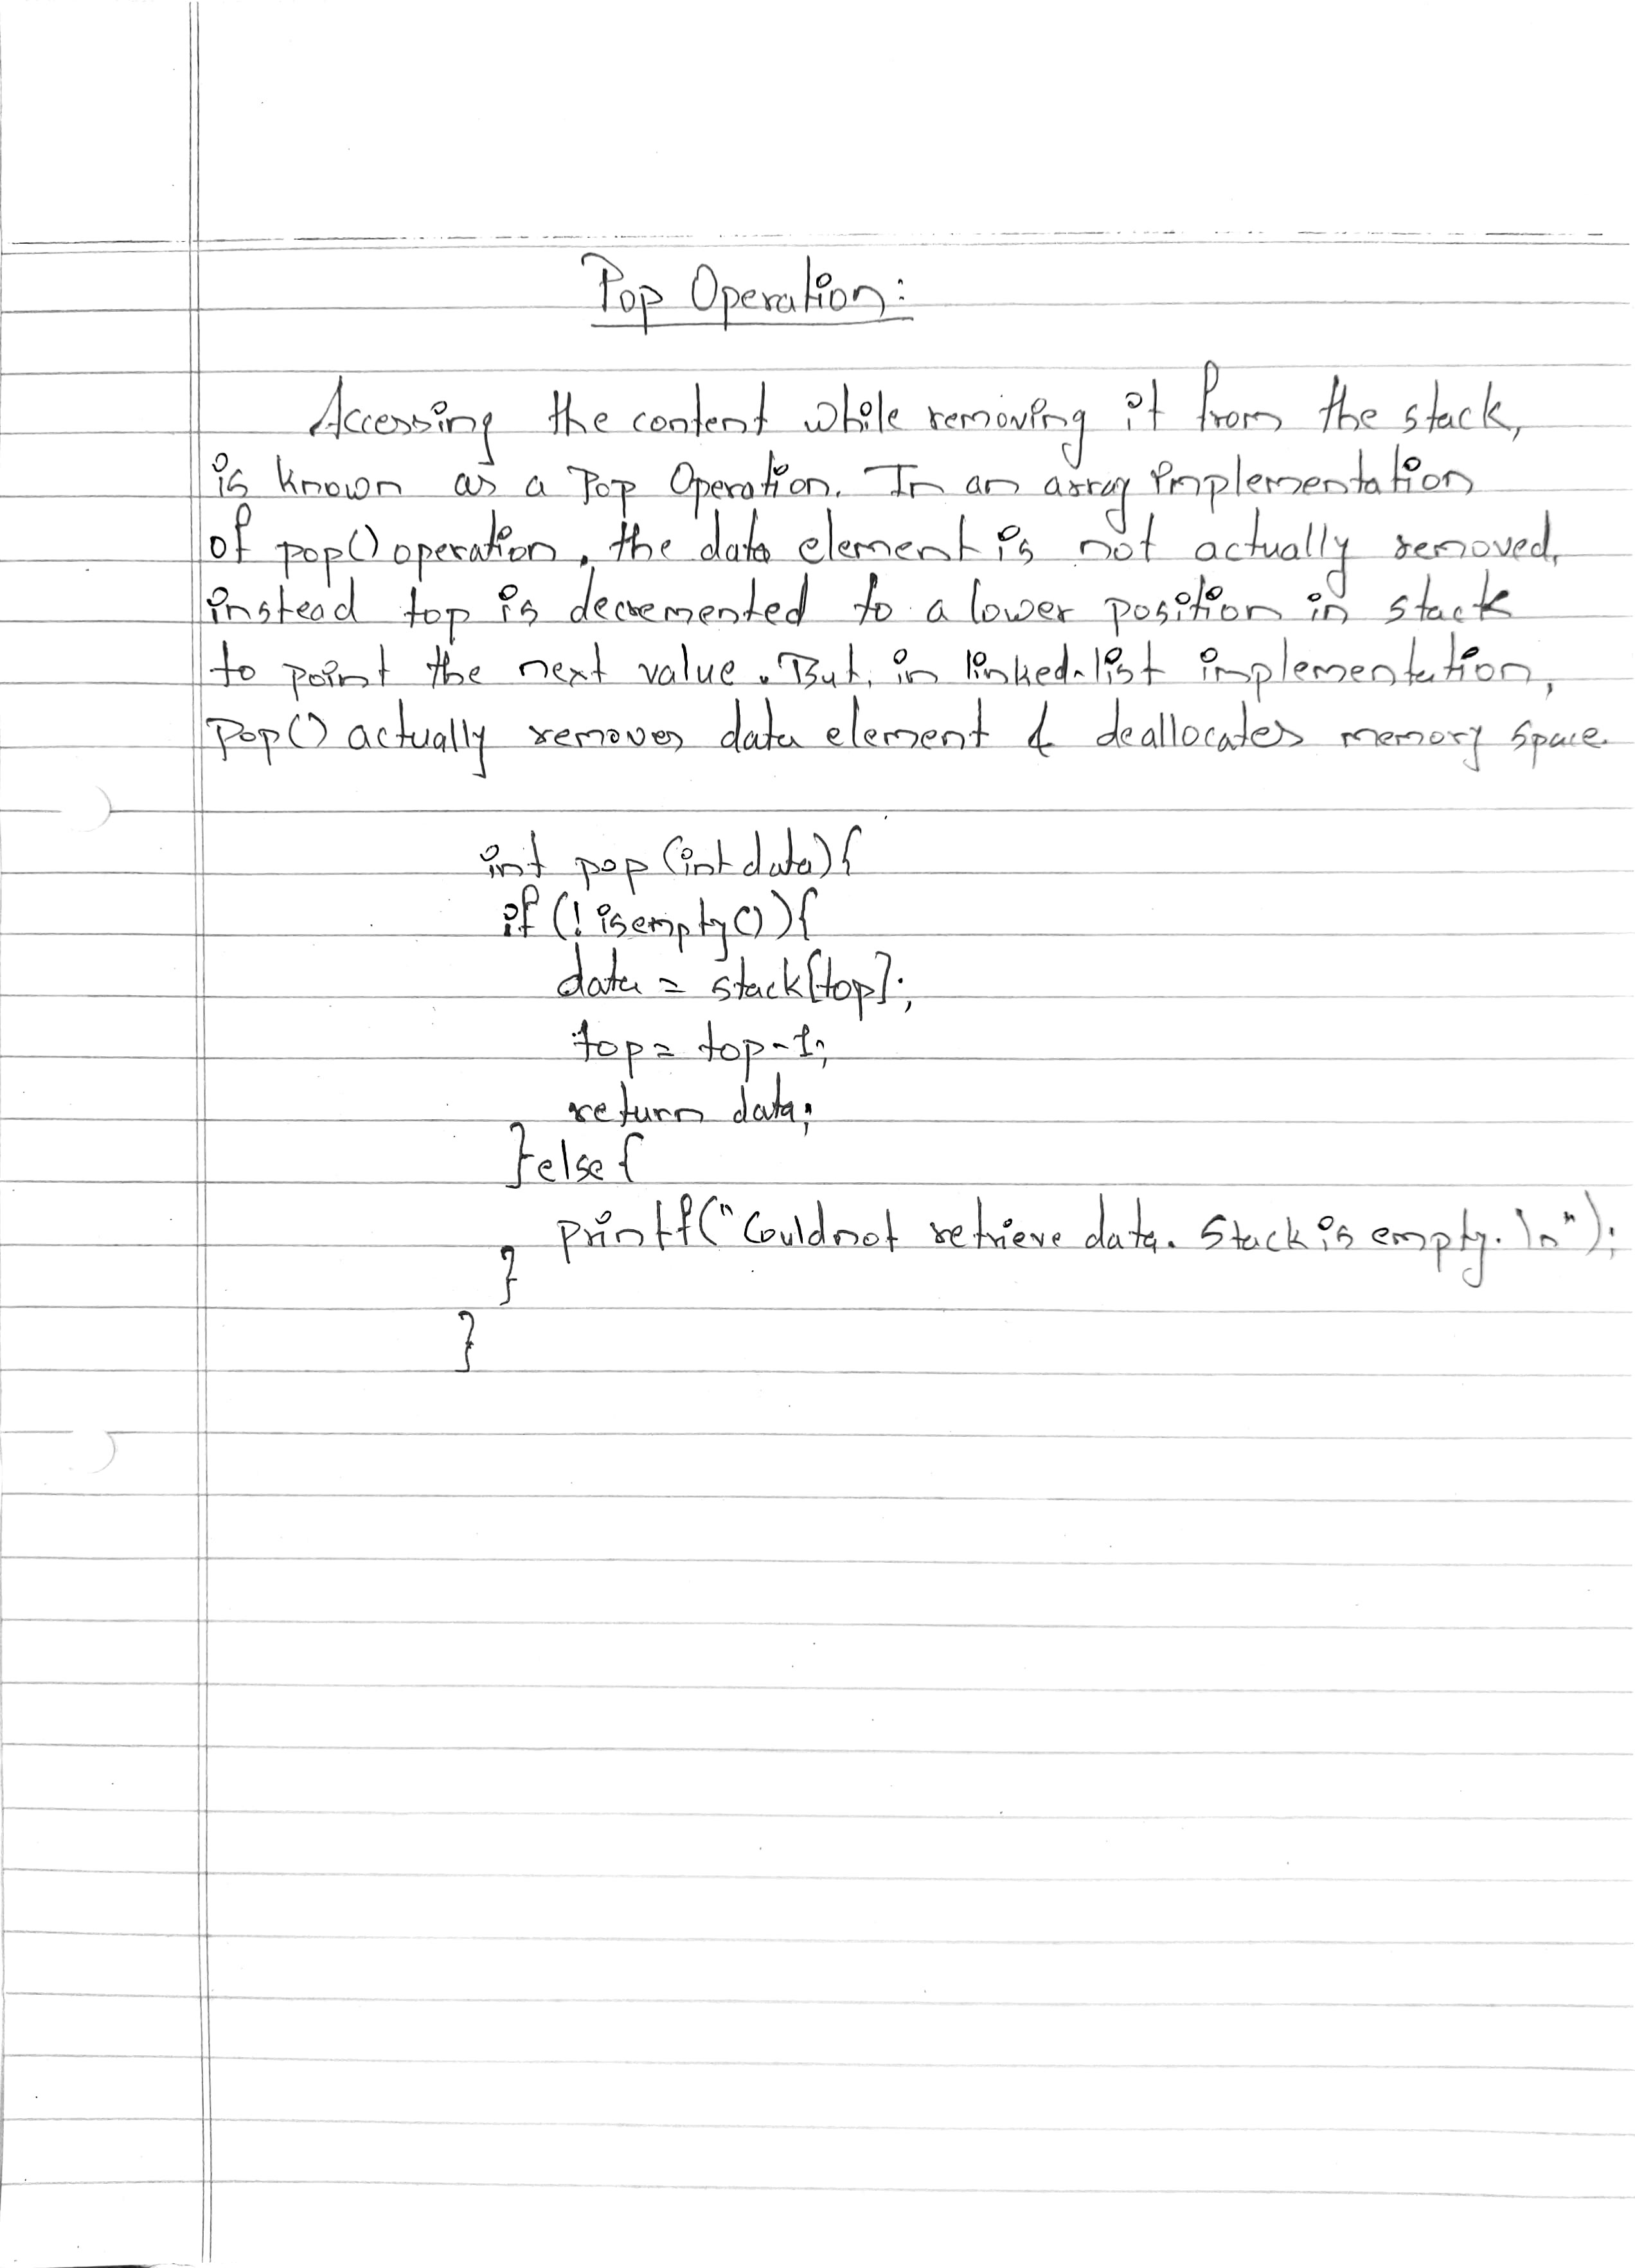 Pop Operation:
Accessing the content while removing it from the stack,
is known as a Pop Operation. In an array implementation
of pop() operation, the data element is not actually removed,
instead top is decremented to a lower position in stack
to point the next value. But, in linked-list implementation,
Pop() actually removes data element & deallocates memory space.
int pop (int data){
if (! isempty()){
data = stack[top];
top = top-1;
return data;
}else{
printf("Couldnot retrieve data. Stack is empty. \n");
}
}